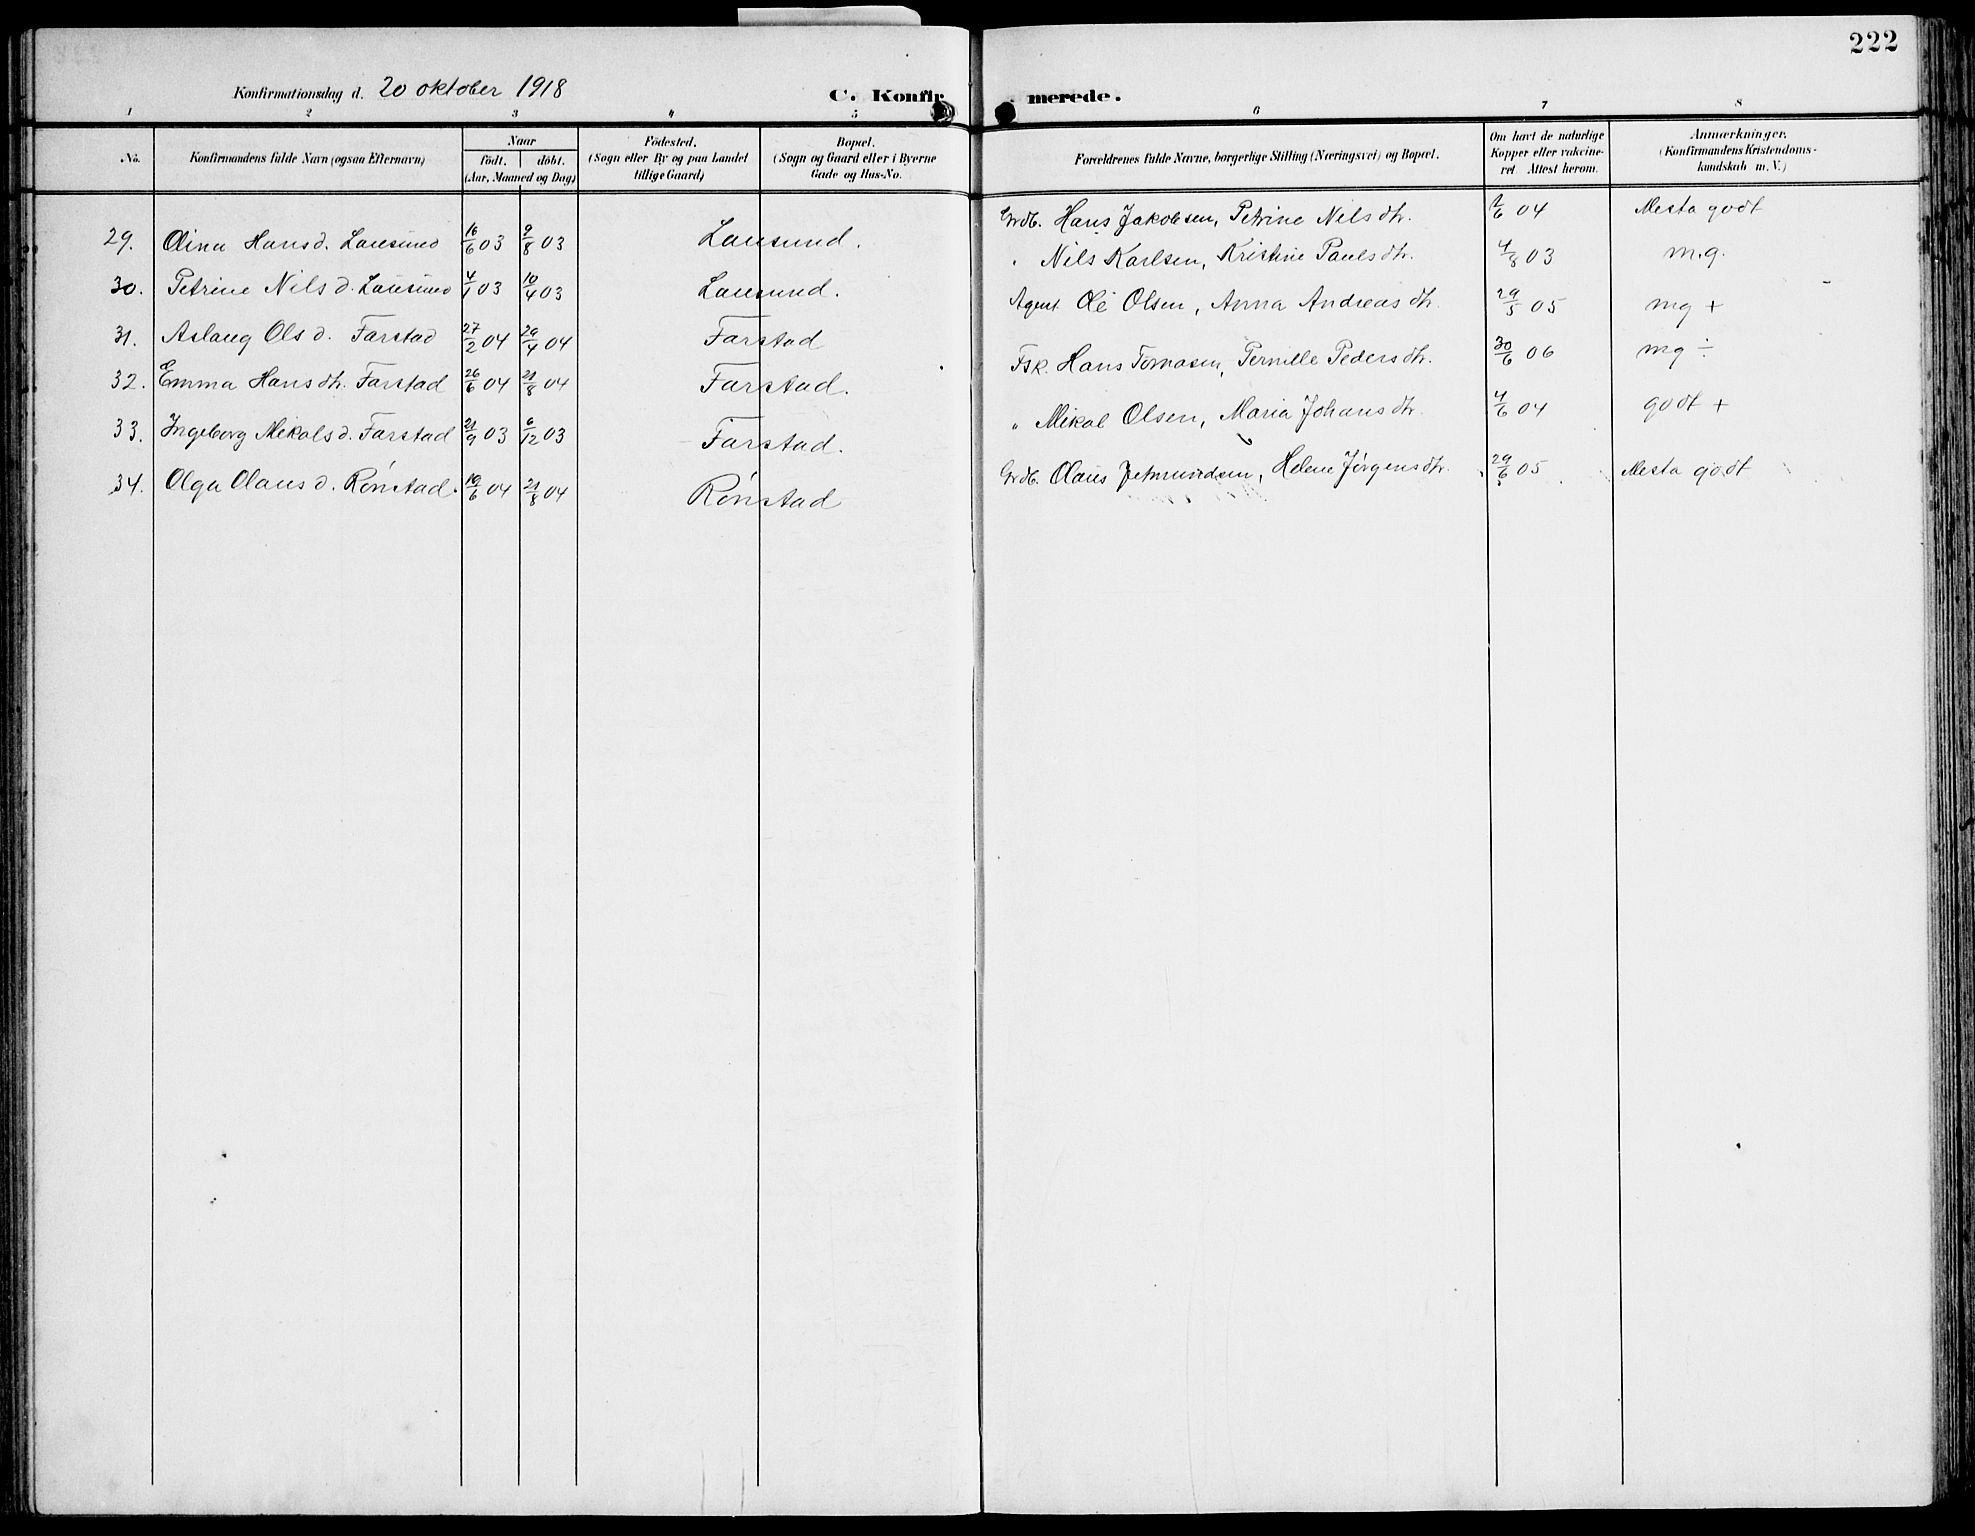 222
Konfirmationsdag d. 20 oktober 1918 C. Konfirmerede.
1 2 3 4 5 6 7 8
No. Konfirmandens fulde Navn (ogsaa Efternavn) Naar født. døbt. (Aar, Maaned og Dag) Fødested. (Sogn eller By og paa Landet tillige Gaard) Bopæl. (Sogn og Gaard eller i Byerne Gade og Hus-No. Forældrenes fulde Navne, borgerlige Stilling (Næringsvei) og Bopæl. Om havt de naturlige Kopper eller vakcineret Attest herom. Anmærkninger. (Konfirmandens Kristendomskundskab m. V.)
29. Olina Hansd. Lausund 16/6 03 9/8 03 Lausund. Grdb. Hans Jakobsen, Petrine Nilsdtr. 1/6 04 Mesta godt
30. Petrine Nilsd. Lausund 4/1 03 10/4 03 Lausund. " Nils Karlsen, Kristine Paulsdtr. 4/8 03 m.g.
31. Aslaug Olsd. Farstad 27/2 04 29/4 04 Farstad Agent Ole Olsen, Anna Andreasdtr. 29/5 05 mg +
32. Emma Hansdtr. Farstad 26/6 04 21/8 04 Farstad. Fsk. Hans Tomasen, Pernille Pedersdtr. 30/6 06 mg ÷
33. Ingeborg Mekalsd. Farstad 21/9 03 6/12 03 Farstad. " Mikal Olsen, Maria Johansdtr. 4/6 04 godt +
34. Olga Olausd. Rønstad. 19/6 04 21/8 04 Rønstad Grdb. Olaus Jetmundsen, Helene Jørgensdtr. 29/6 05 Mesta godt